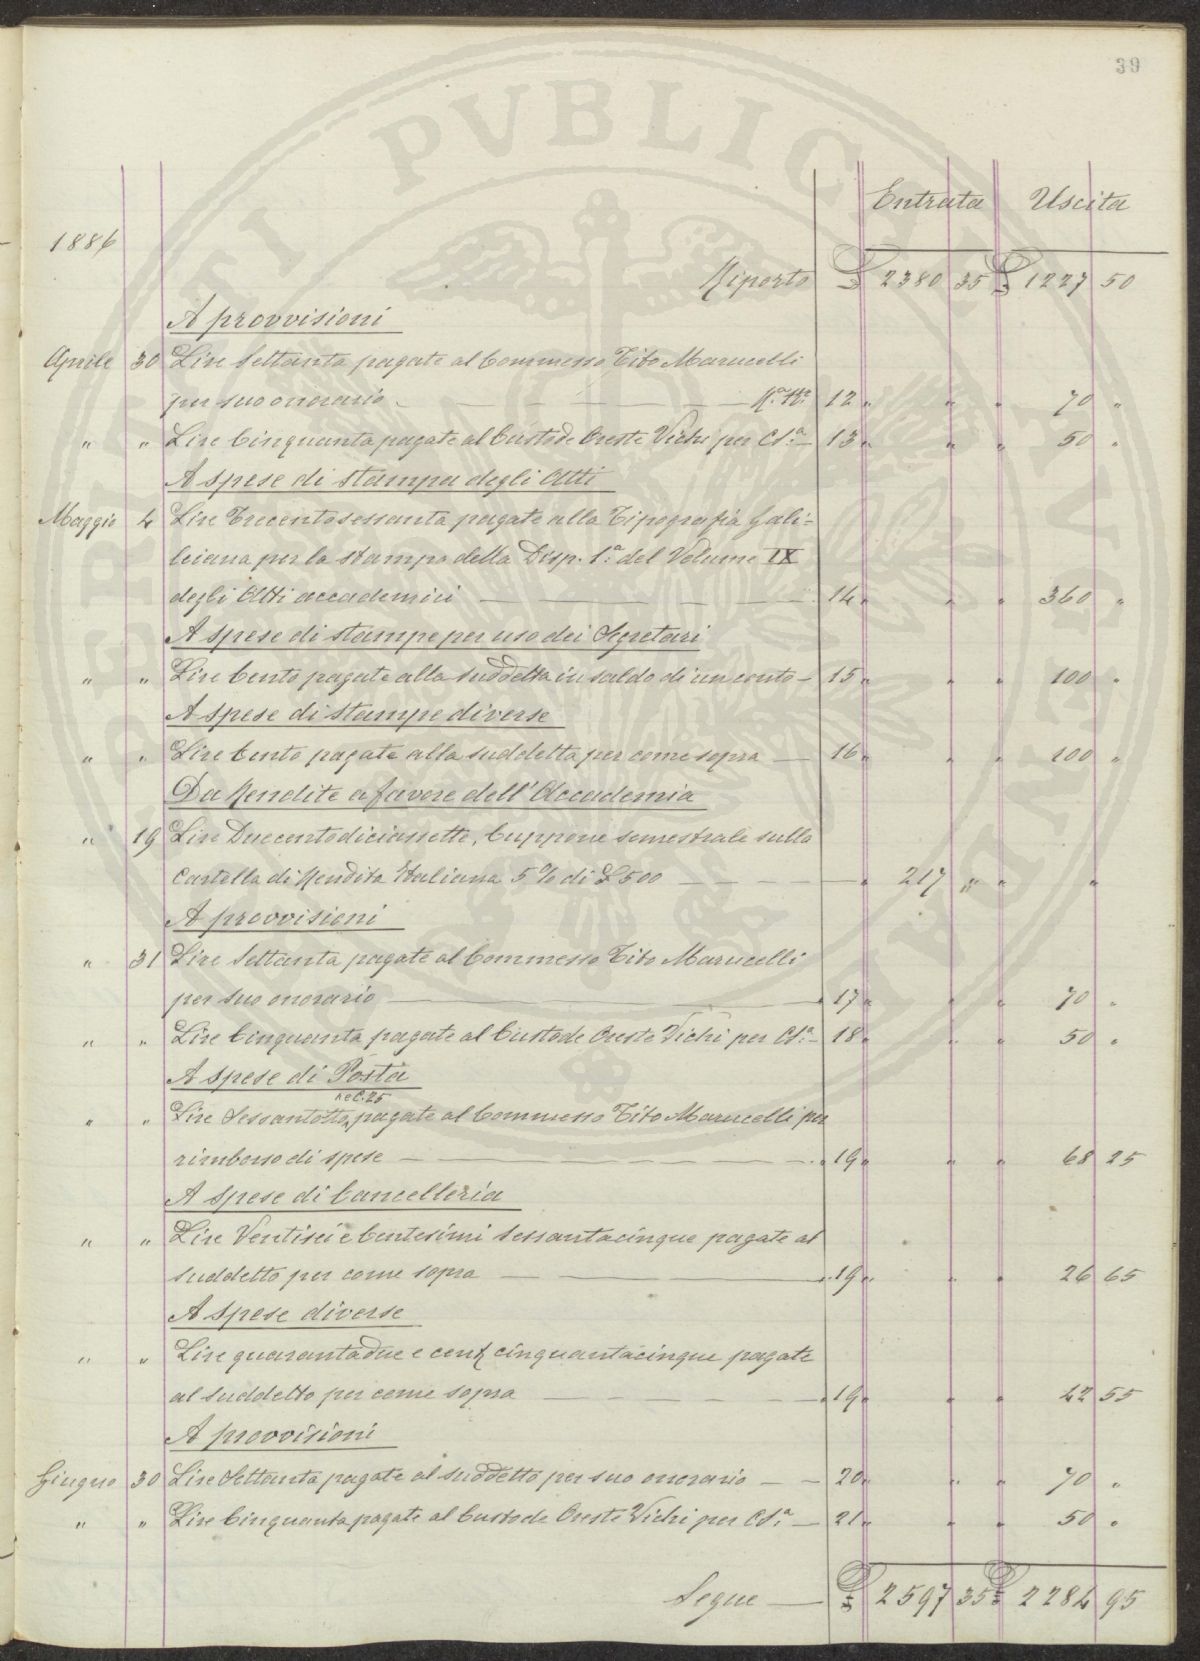 39
Entrata Uscita
1886
Riporto £ 2380 35 £ 1227 50
A provvisioni
Aprile 30 Lire Settanta pagate al Commesso Tito Marucelli
per suo onorario — 12 " " " 70 "
" " Lire Cinquanta pagate al Custode Oreste Vichi per Cs.ª — 13 " " " 50 "
A spese di stampa degli Atti
Maggio 4 Lire Trecentosessanta pagate alla Tipografia Gali=
leiana per la stampa della Disp. 1.ª del Volume IX
degli Atti accademici — 14 " " " 360 "
A spese di stampe per uso dei Segretari
" " Lire Cento pagate alla suddetta in saldo di un conto — 15 " " " 100 "
A spese di stampe diverse
" " Lire Cento pagate alla suddetta per come sopra — 16 " " " 100 "
Da Rendite a favore dell'Accademia
" 19 Lire Duecentodiciassette, Cuppone semestrale sulla
Cartella di Rendita Italiana 5 % di £ 500 — " 217 " " "
A provvisioni
" 31 Lire Settanta pagate al Commesso Tito Marucelli
per suo onorario — 17 " " " 70 "
" " Lire Cinquanta pagate al Custode Oreste Vichi per Cs.ª — 18 " " " 50 "
A spese di Posta
e C. 25
" " Lire Sessantotto pagate al Commesso Tito Marucelli per
rimborso di spese — 19 " " " 68 25
A spese di Cancelleria
" " Lire Ventisei e Centesimi sessantacinque pagate al
suddetto per come sopra — 19 " " " 26 65
A spese diverse
" " Lire quarantadue e cent cinquantacinque pagate
al suddetto per come sopra — 19 " " " 42 55
A provvisioni
Giugno 30 Lire Settanta pagate al suddetto per suo onorario — 20 " " " 70 "
" " Lire Cinquanta pagate al Custode Oreste Vichi per Cs.ª — 21 " " " 50 "
Segue — £ 2597 35 £ 2284 95